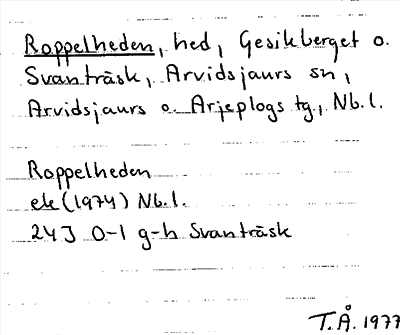 Roppelheden, hed, Gesikberget o.
Svanträsk, Arvidsjaurs sn,
Arvidsjaurs o. Arjeplogs tg., Nb.l.
Roppelheden
ek (1974) Nb.l.
24J 0-1 g-h Svanträsk
T.Å. 1977